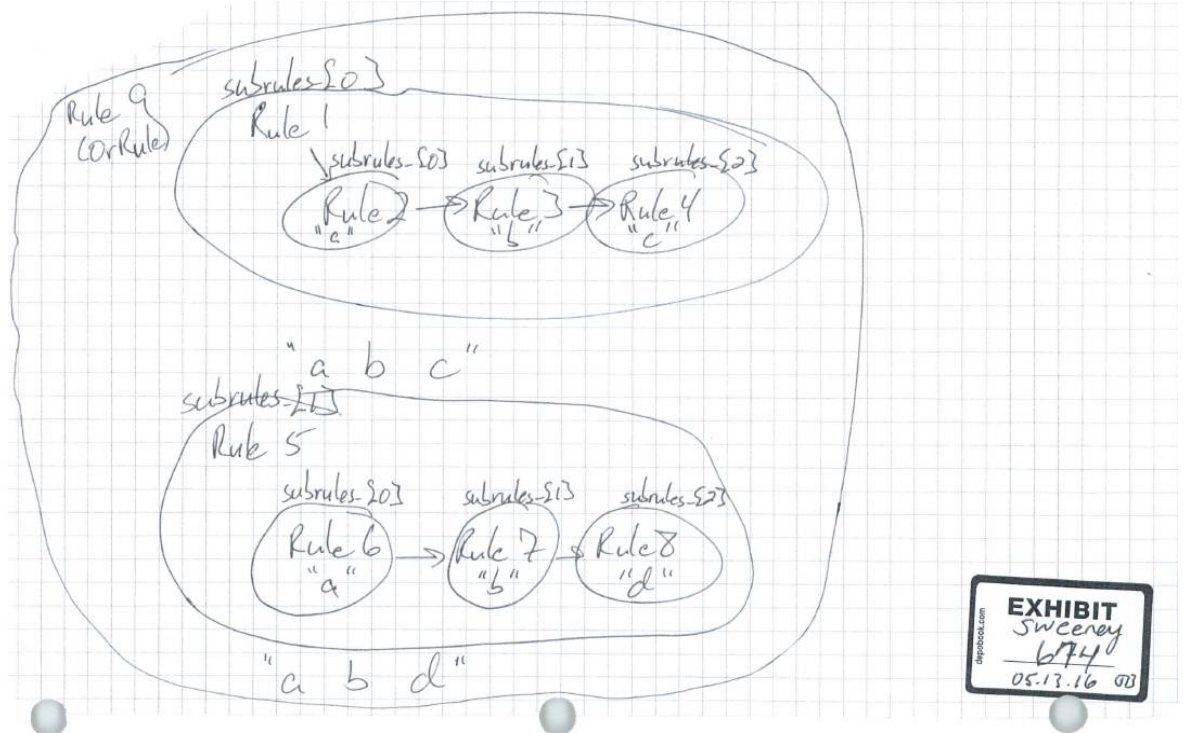 subrules_[0]
Rule 9
(OrRule)
Rule 1
subrules_[0] subrules_[1] subrules_[2]
Rule 2 Rule 3 Rule 4
"a" "b" "c"
"a b c"
subrules_[1]
Rule 5
subrules_[0] subrules_[1] subrules_[2]
Rule 6 Rule 7 Rule 8
"a" "b" "d"
"a b d"
depobook.com
EXHIBIT
Sweeney
674
05.13.16